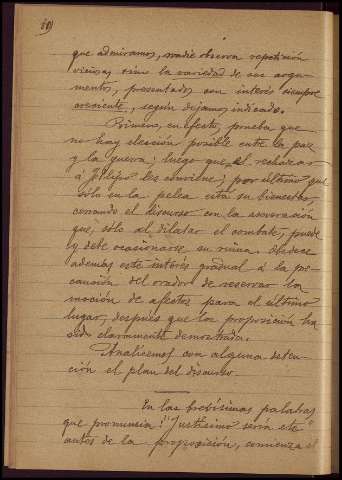 que admiramos, nadie observa repetición
viciosa, sino la variedad de sus argu-
mentos, presentados con interés siempre
creciente, según dejamos indicado.
Primero, en efecto, prueba que
no hay eleccion posible entre la paz
y la guerra, luego que el rechazar
á Filipo les conviene, por último que
sólo en la pelea está su bienestar,
cerrando el discurso con la aseveración
que, sólo al dilatar el combate, puede
y debe ocasionarse su ruina. Obedece
además este interés gradual á la pre-
caución del orador de reservar la
moción de afectos para el último
lugar, después que la proposición ha
sido claramente demostrada.
Analicemos con alguna deten-
ción el plan del discurso.
En las brebísimas palabras
que pronuncia "Justísimo sería etc"
antes de la proposición, comienza el